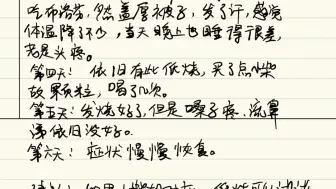 吃布洛芬,然盖厚被子,发了汗,感觉
体温降了不少,当天晚上也睡得很差,
老是头疼。
第四天:依旧有些低烧,买了点柴
故果颗粒,喝了几次。
第五天:发烧好了,但是嗓子疼、流鼻
涕依旧没好。
第六天:症状慢慢恢复。